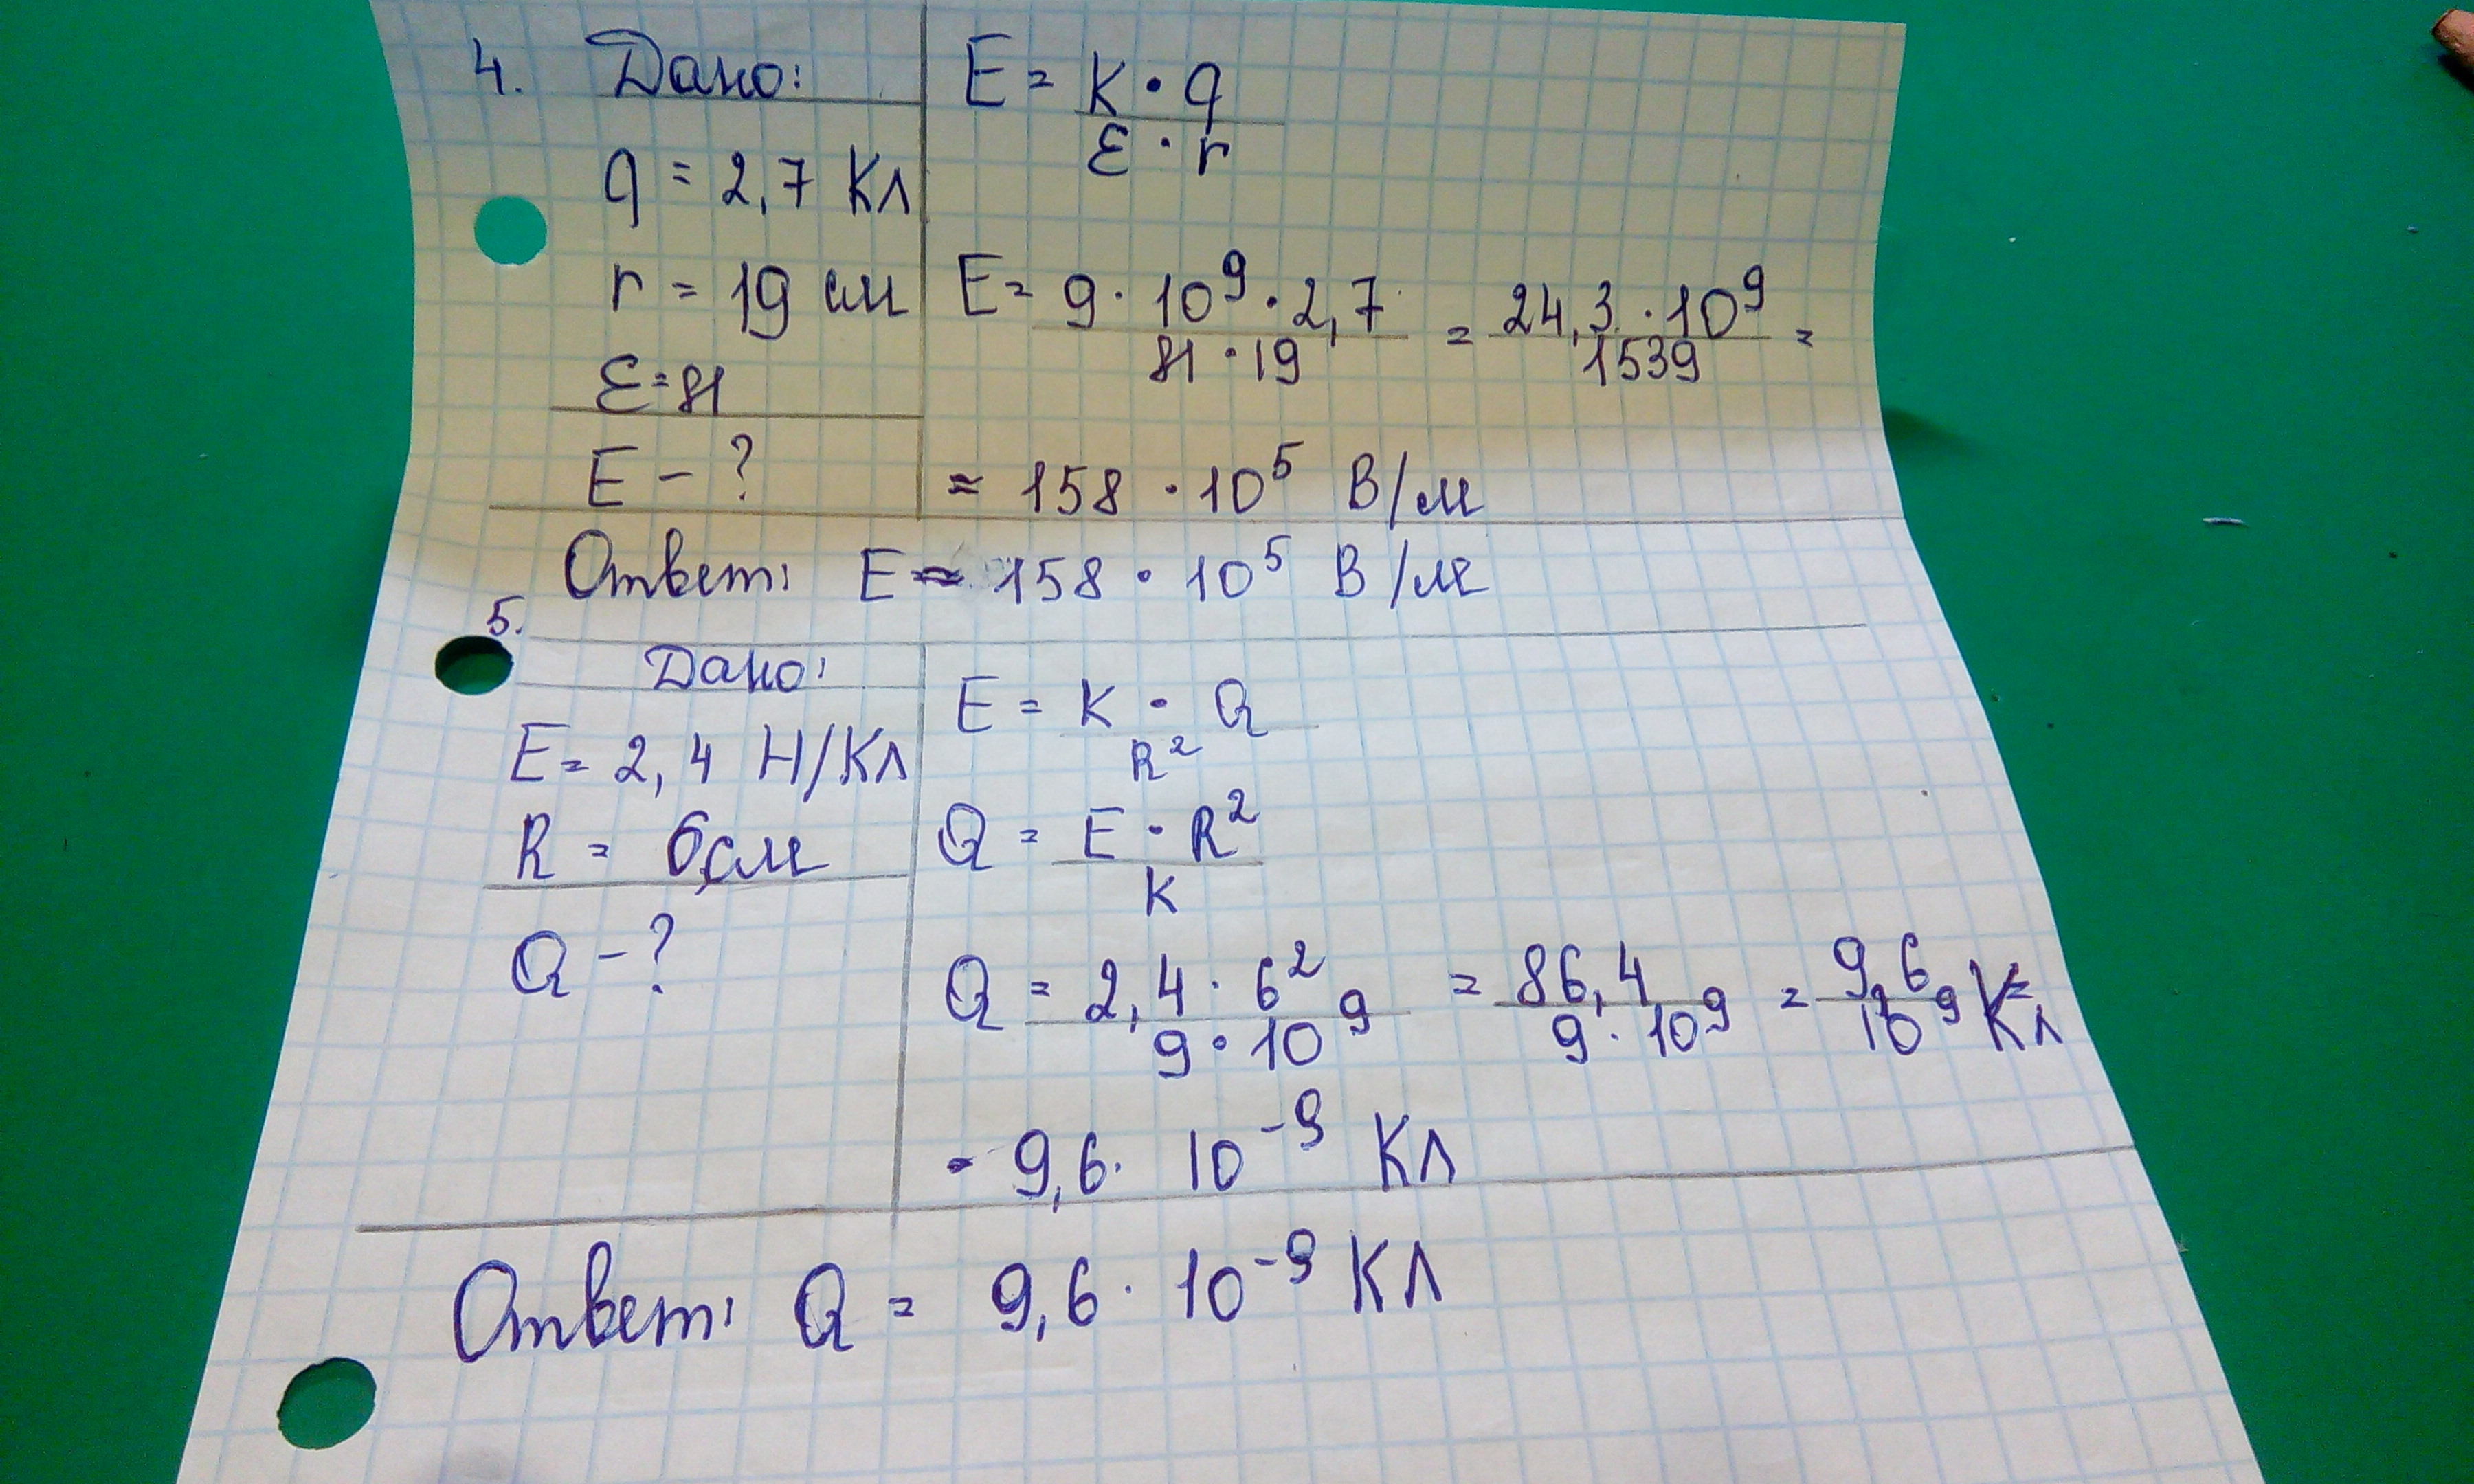 4. Дано:
q = 2,7 Кл
r = 19 см
ε = 81
E - ?
E = K · q
ε · r
E = 9 · 10⁹ · 2,7 = 24,3 · 10⁹ =
81 · 19 1539
≈ 158 · 10⁵ В/м
Ответ: E ≈ 158 · 10⁵ В/м
5.
Дано:
E = 2,4 Н/Кл
R = 6 см
Q - ?
E = K · Q
R²
Q = E · R²
K
Q = 2,4 · 6² 9 = 86,4 = 9,6 Кл =
9 · 10 9 · 10⁹ 10⁹
= 9,6 · 10⁻⁹ Кл
Ответ: Q = 9,6 · 10⁻⁹ Кл